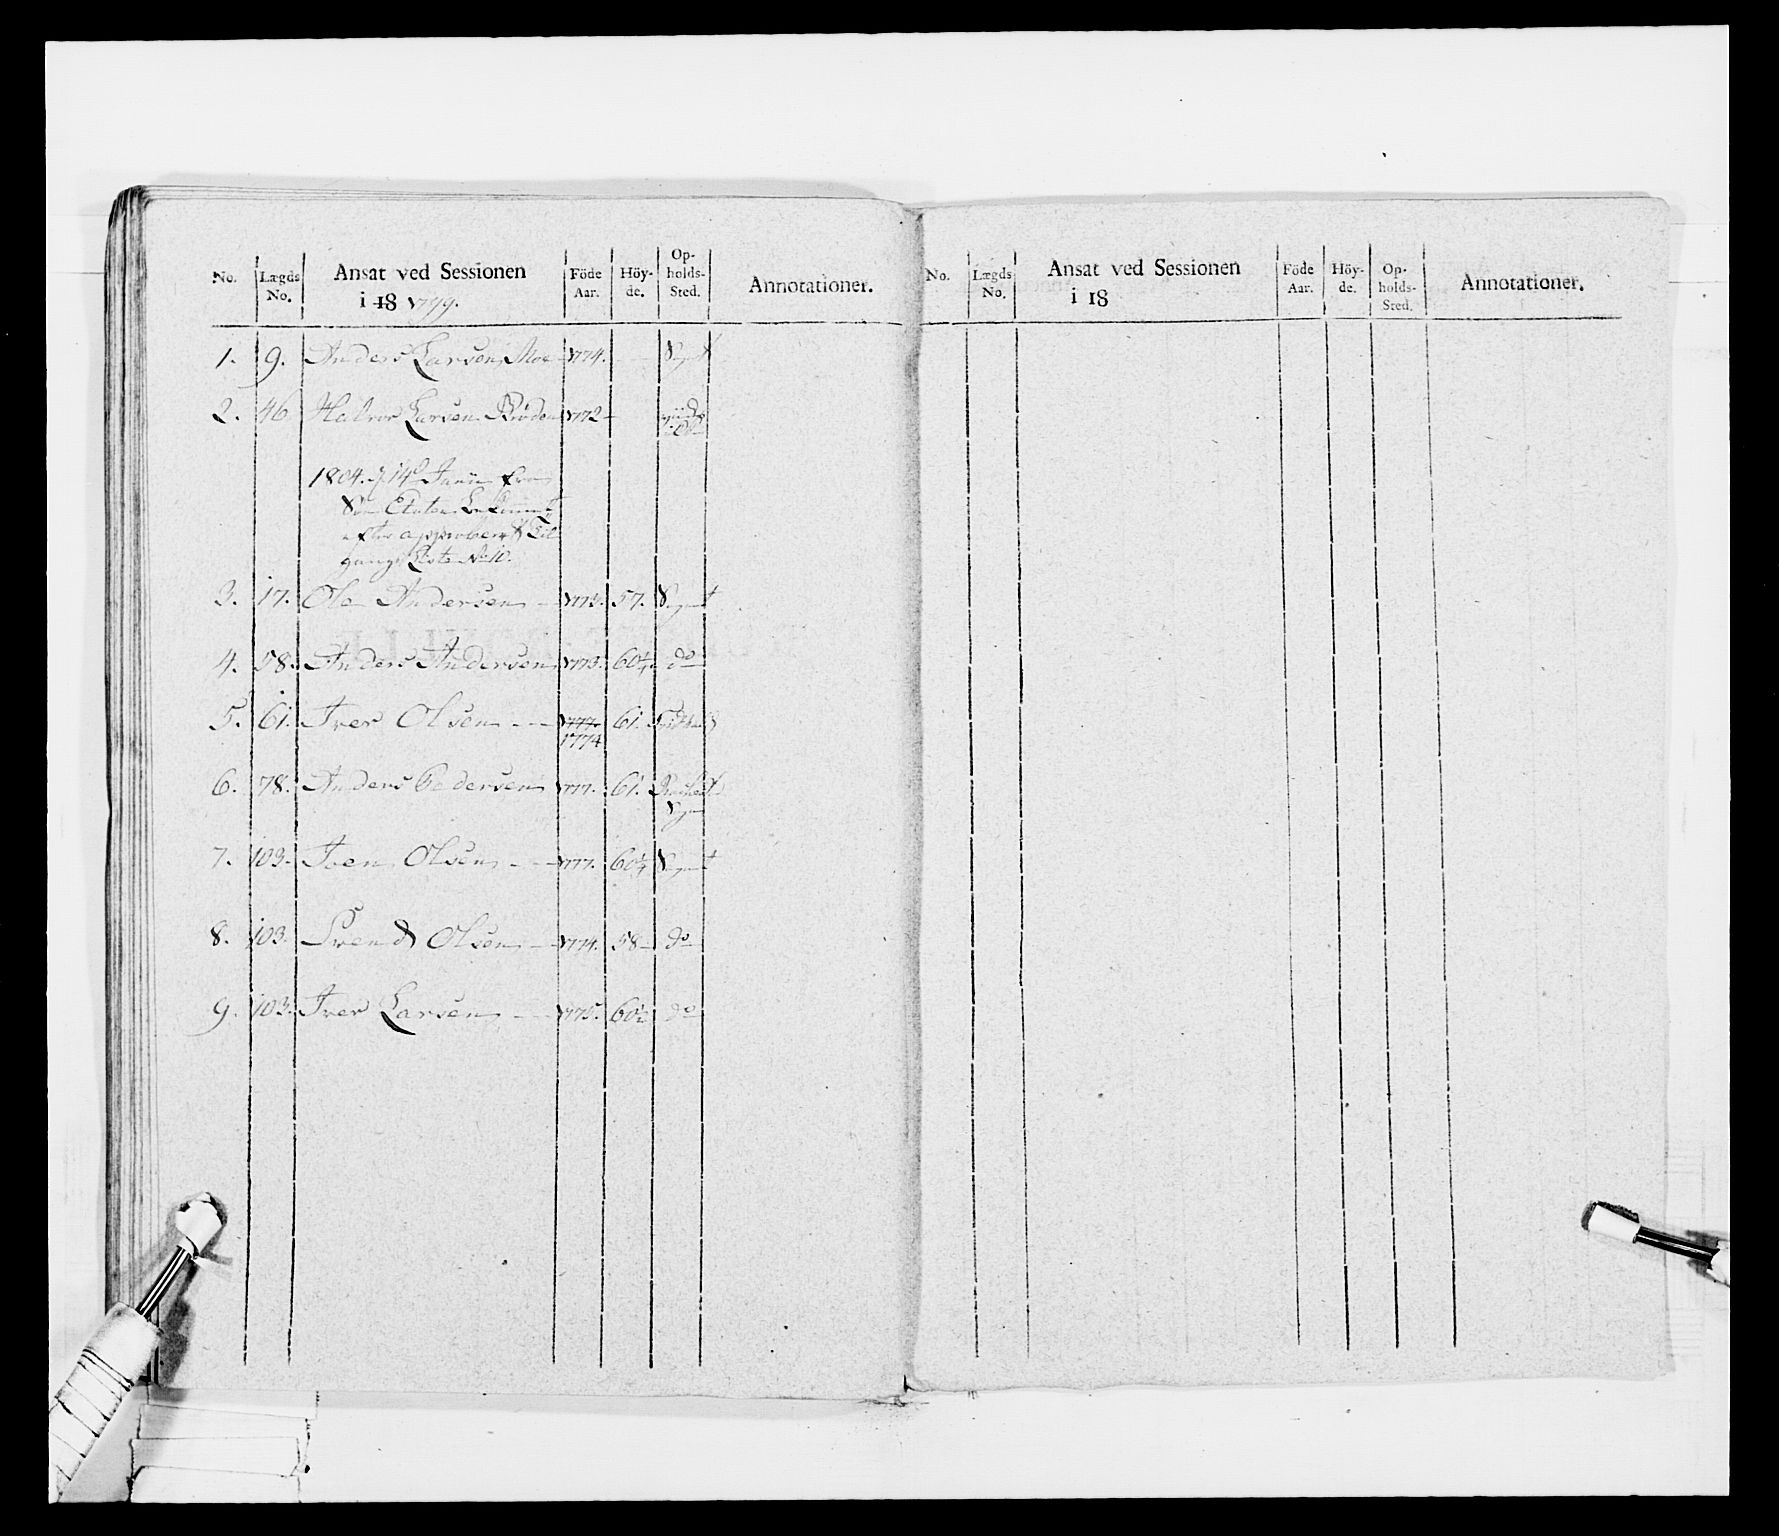 No. Lægds No. Ansat ved Sessionen i 18 1799. Föde Aar. Höyde. Opholds-Sted. Annotationer.
1. 9. Anders Larsen Moe 1774.
2. 46. Halvor Larsen 1772
1804. d. 14d Junii fra
efter approberet Til
gangs Liste No 10.
3. 17. Ole Andersen 1773. 57.
4. 58. Anders Andersen 1773. 60 1/4 do
5. 61. Iver Olsen 1777. 61.
1774
6. 78. Anders Pedersen 1777. 61.
Sogn
7. 103. Joen Olsen 1777. 60 1/4
8. 103. Svend Olsen 1774. 58 do
9. 103. Iver Larsen 1775. 60 1/2 do
No. Lægds No. Ansat ved Sessionen i 18 Föde Aar. Höyde. Opholds-Sted. Annotationer.